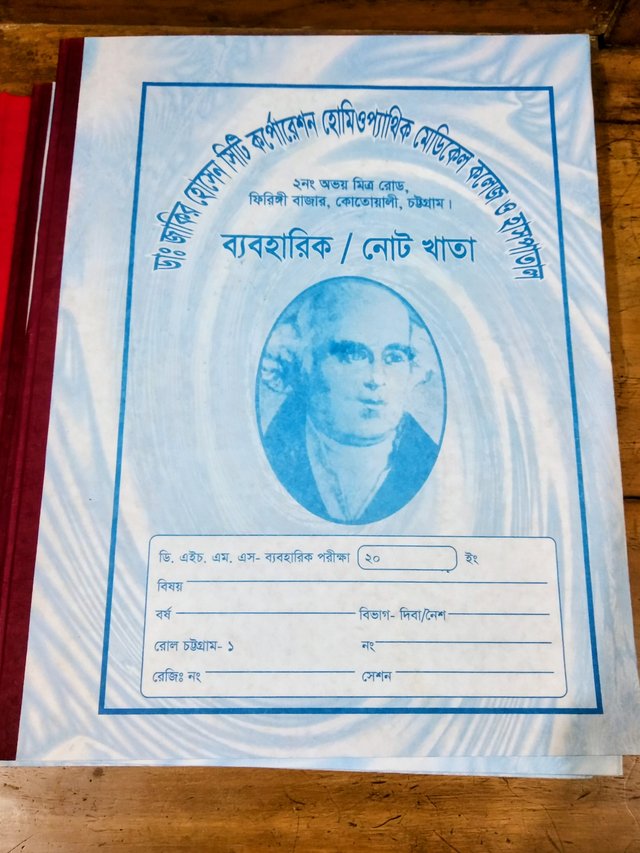 ডাঃ জাকির হোসেন সিটি কর্পোরেশন হোমিওপ্যাথিক মেডিকেল কলেজ ও হাসপাতাল
২নং অভয় মিত্র রোড,
ফিরিঙ্গী বাজার, কোতোয়ালী, চট্টগ্রাম।
ব্যবহারিক / নোট খাতা
ডি. এইচ. এম. এস- ব্যবহারিক পরীক্ষা ২০ ইং
বিষয়
বর্ষ বিভাগ- দিবা/নৈশ
রোল চট্টগ্রাম- ১ নং
রেজিঃ নং সেশন